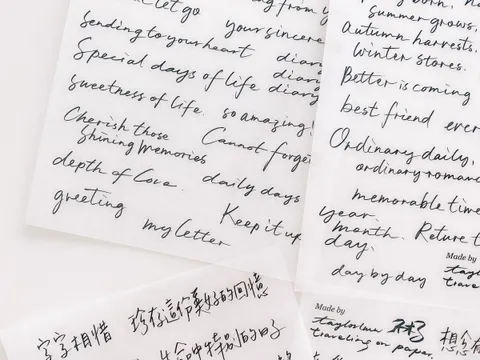 let go
your sincere
Sending to your heart
diary
Special days of life
diary
diary
sweetness of life.
so amazing!
Cherish those
Shining Memories
Cannot forget
depth of Love.
daily days
greeting
Keep it up
my letter
summer grows,
Autumn harvests.
Winter stores.
Better is coming
best friend ever
Ordinary daily,
ordinary romance
memorable time
year.
month.
Return
day.
day by day
Made by
字字相惜
珍存這份美好的回憶
特別的日子
Made by
taylorlau
traveling on paper